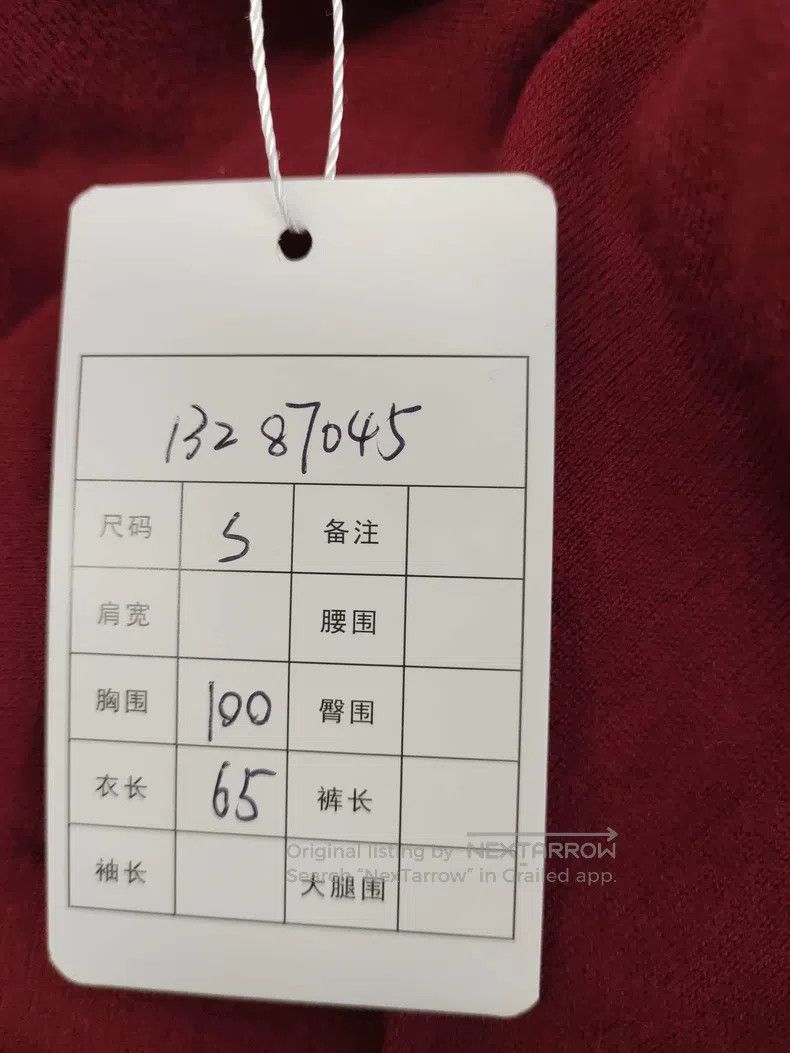 13287045
尺码 S 备注
肩宽 腰围
胸围 100 臀围
衣长 65 裤长
袖长 大腿围
Original listing by NEXTARROW
Search "NexTarrow" in Grailed app.